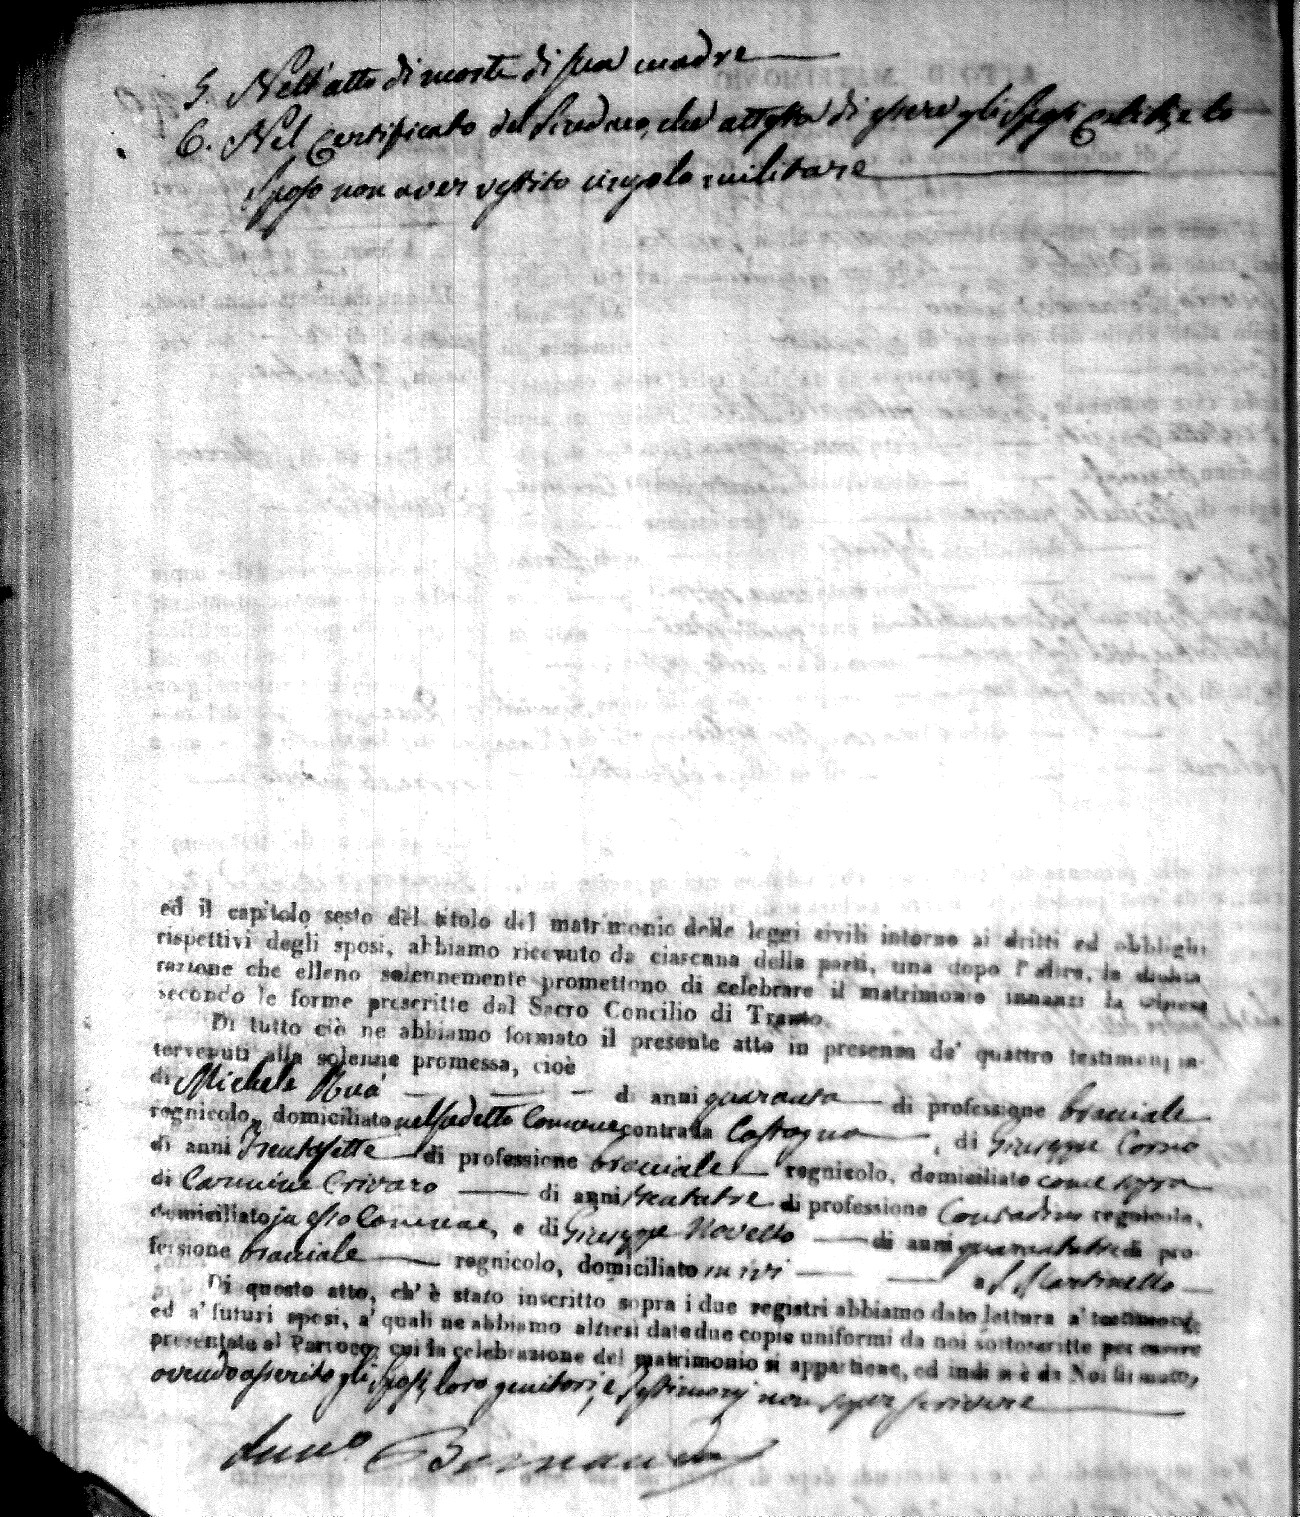 5. Nell'atto di morte di sua madre
6. Nel certificato del Sindaco, che attesta di essere gli Sposi celibi, e lo
Sposo non aver vestito cingolo militare
ed il capitolo sesto del titolo del matrimonio delle leggi civili intorno ai dritti ed obblighi
rispettivi degli sposi, abbiamo ricevuto da ciascuna delle parti, una dopo l'altra, la dichia
razione che elleno solennemente promettono di celebrare il matrimonio innanzi la chiesa
secondo le forme prescritte dal Sacro Concilio di Trento.
Di tutto ciò ne abbiamo formato il presente atto in presenza de' quattro testimonj in-
tervenuti alla solenne promessa, cioè
di Michele di anni quaranta di professione bracciale
regnicolo, domiciliato nel sudetto Comune contrada Castagna, di Giuseppe
di anni trentasette di professione bracciale regnicolo, domiciliato come sopra
di Carmine Crivaro di anni trentatre di professione regnicolo,
domiciliato in esso Comune, e di Giuseppe Novello di anni quarantatre di pro-
fessione bracciale regnicolo, domiciliato ivi
Di questo atto, ch' è stato inscritto sopra i due registri abbiamo dato lettura a' testimonj,
ed a' futuri sposi, a' quali ne abbiamo altresì date due copie uniformi da noi sottoscritte per essere
presentate al Parroco, cui la celebrazione del matrimonio si appartiene, ed indi si è da Noi firmato,
avendo asserito gli Sposi, loro genitori, e testimonj non saper scrivere